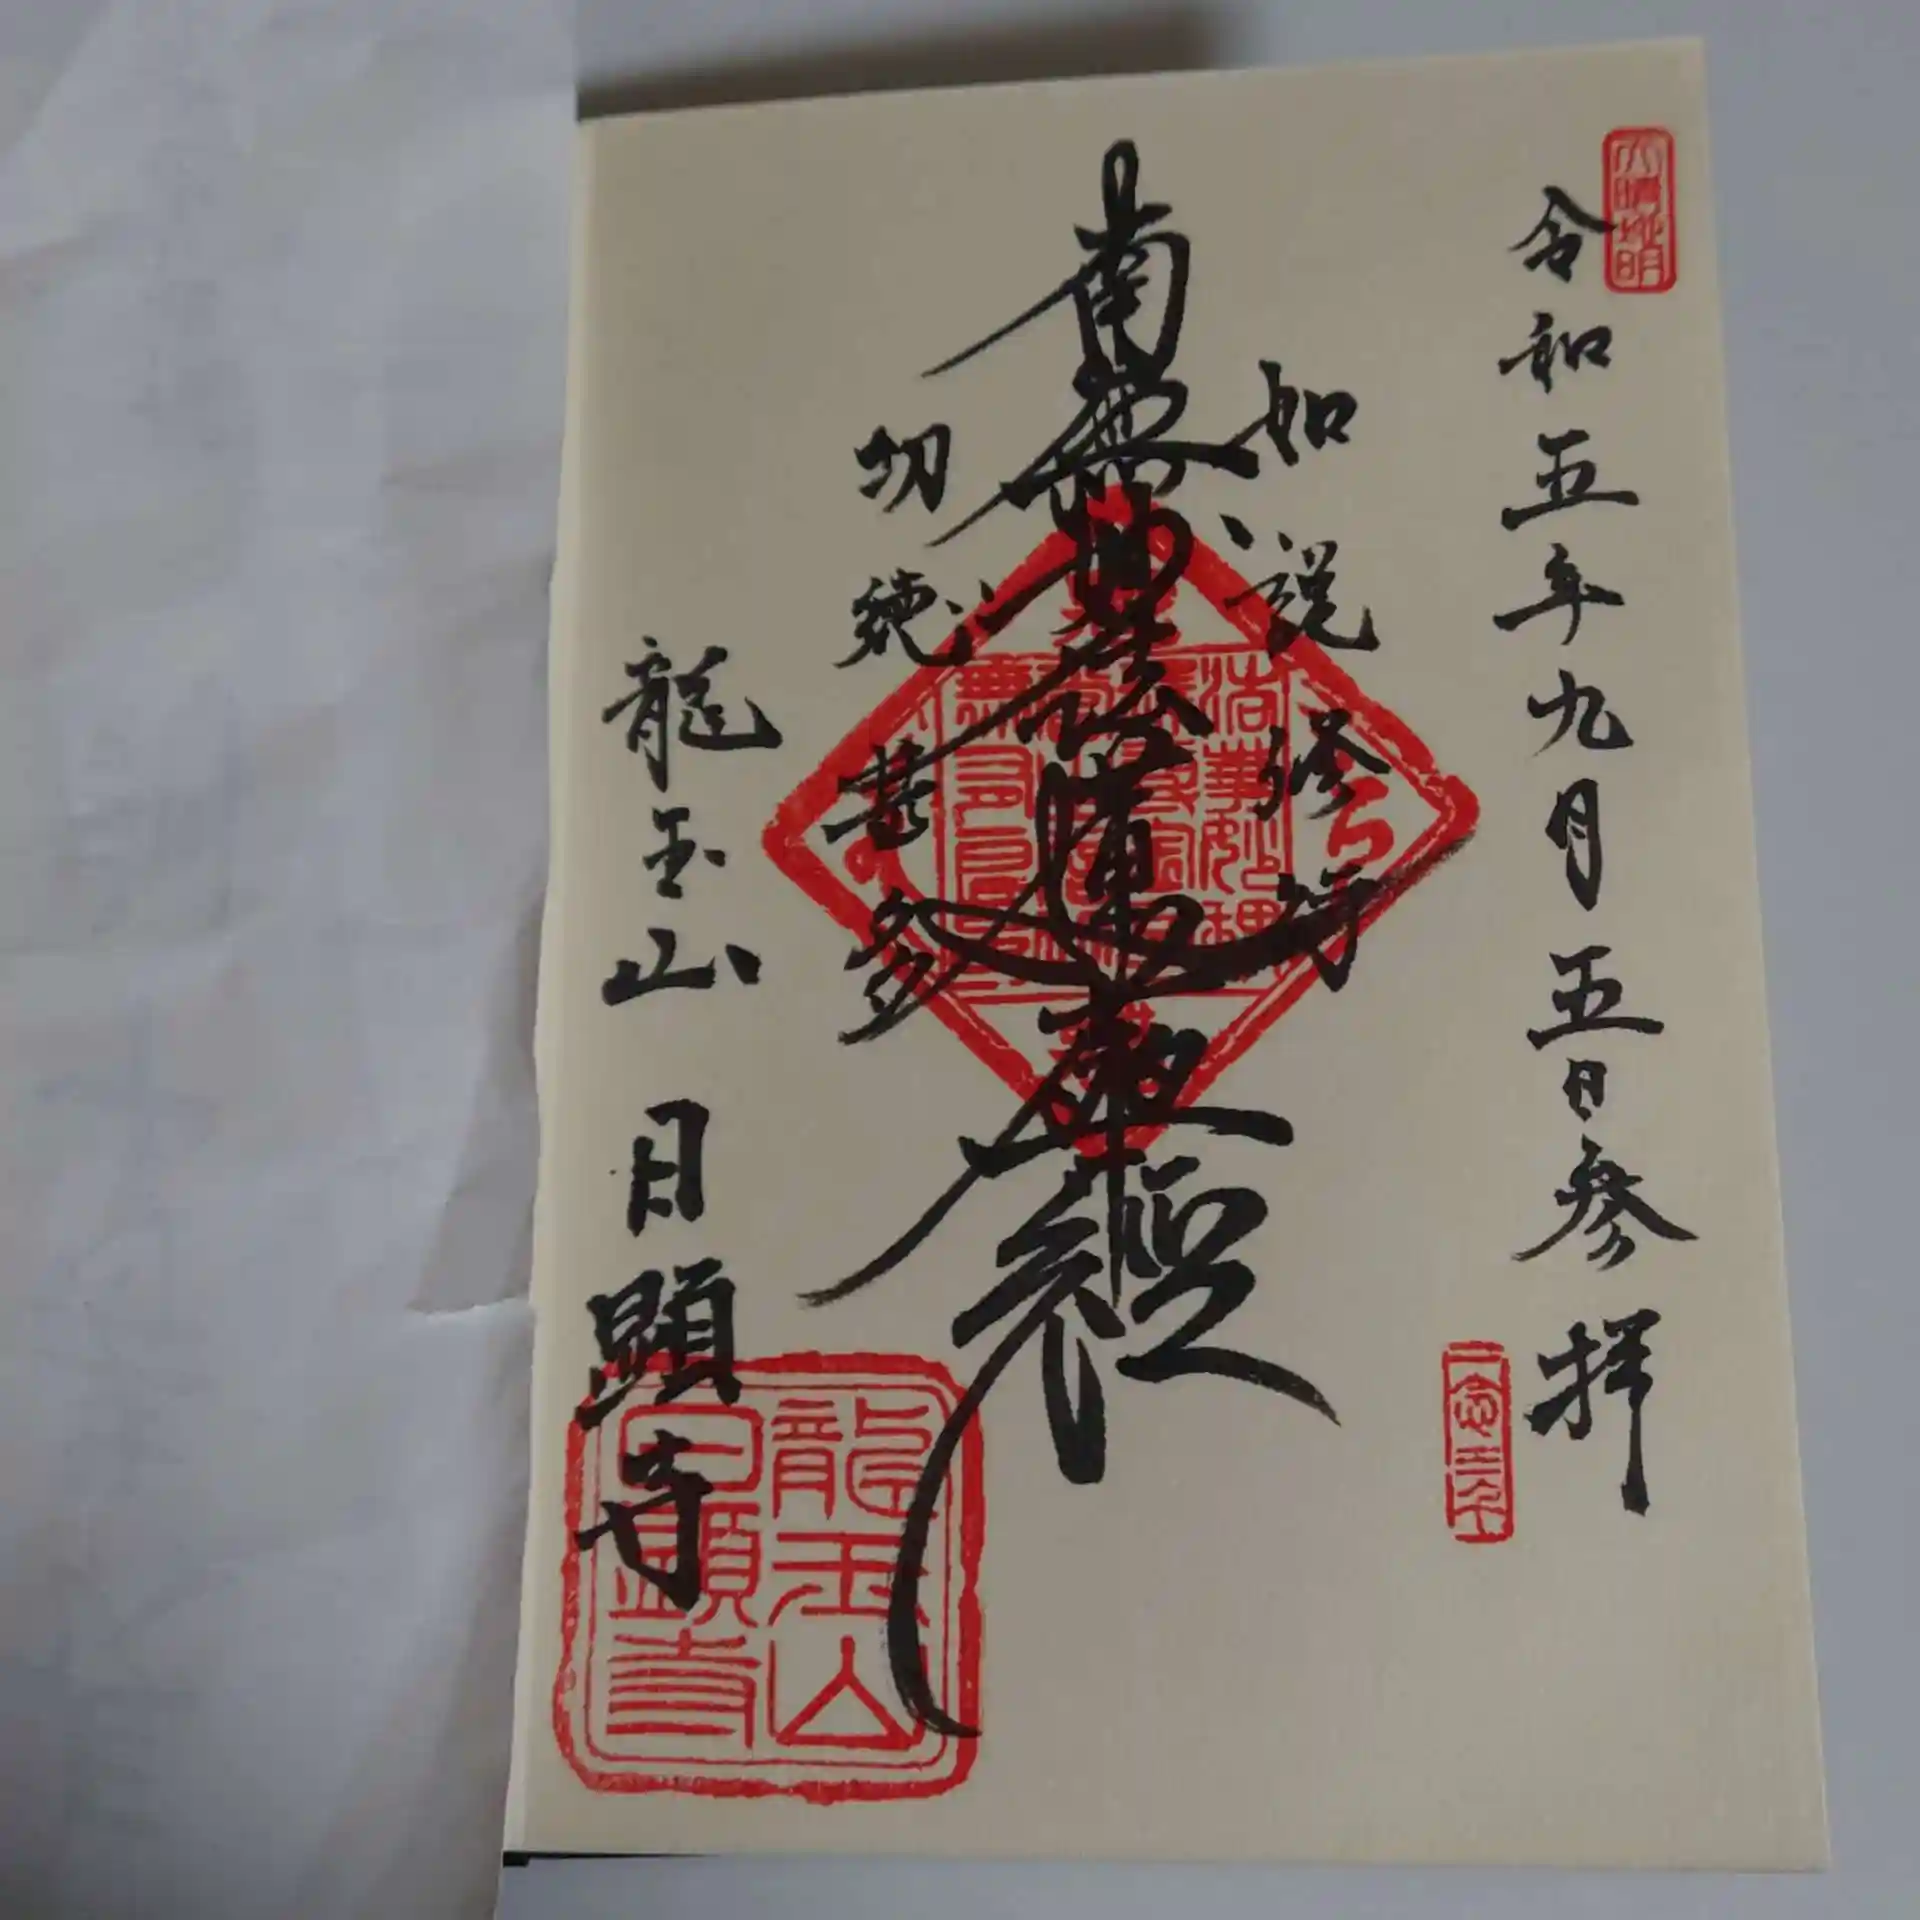 令和五年九月五日参拝
如説修行
南無妙法蓮華経
功徳甚多
龍玉山 日顕寺
龍玉山
日顕寺